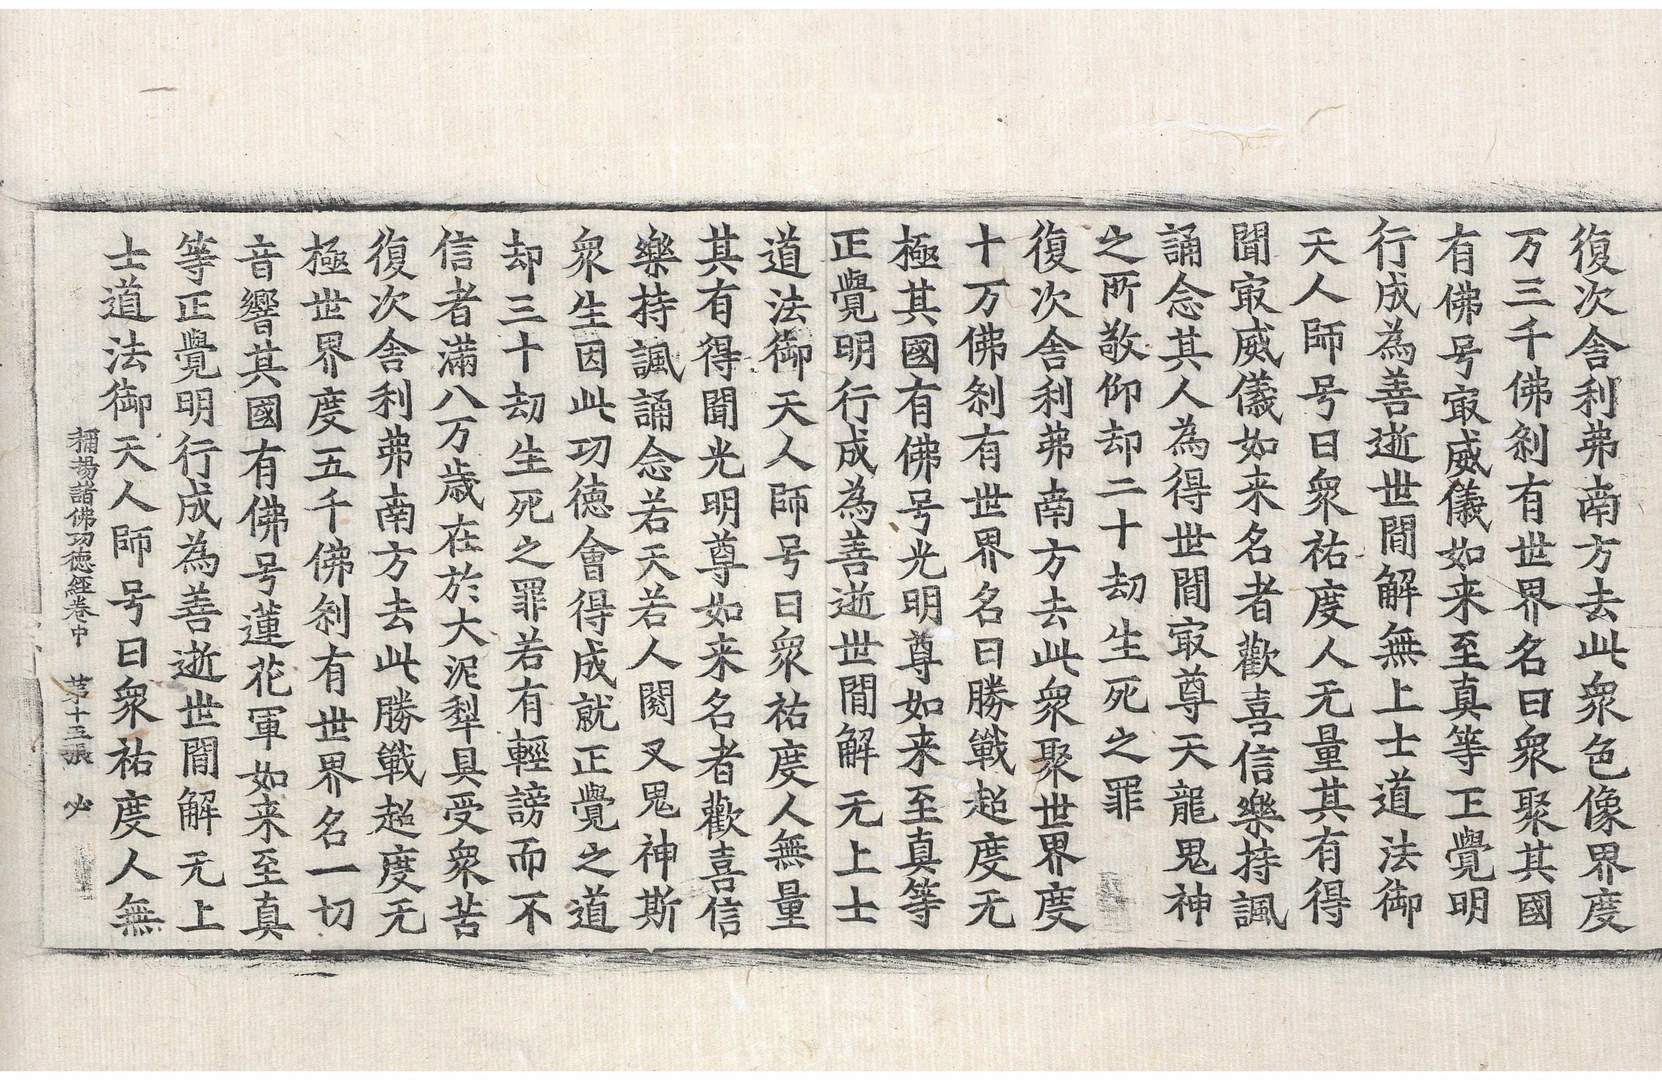 復次舎利弗南方去此衆色像界度
万三千佛刹有世界名曰衆聚其國
有佛号㝡威儀如来至真等正覺明
行成為善逝世間解無上士道法御
天人師号曰衆祐度人无量其有得
聞㝡威儀如来名者歡喜信樂持諷
誦念其人為得世間㝡尊天龍鬼神
之所敬仰却二十劫生死之罪
復次舎利弗南方去此衆聚世界度
十万佛刹有世界名曰勝戰超度无
極其國有佛号光明尊如来至真等
正覺明行成為善逝世間解无上士
道法御天人師号曰衆祐度人無量
其有得聞光明尊如来名者歡喜信
樂持諷誦念若天若人閱叉鬼神斯
衆生因此功德會得成就正覺之道
却三十劫生死之罪若有輕謗而不
信者滿八万歳在於大泥犁具受衆苦
復次舎利弗南方去此勝戰超度无
極世界度五千佛刹有世界名一切
音響其國有佛号蓮花軍如来至真
等正覺明行成為善逝世間解无上
士道法御天人師号曰衆祐度人無
稱揚諸佛功德經卷中 苐十五張 必